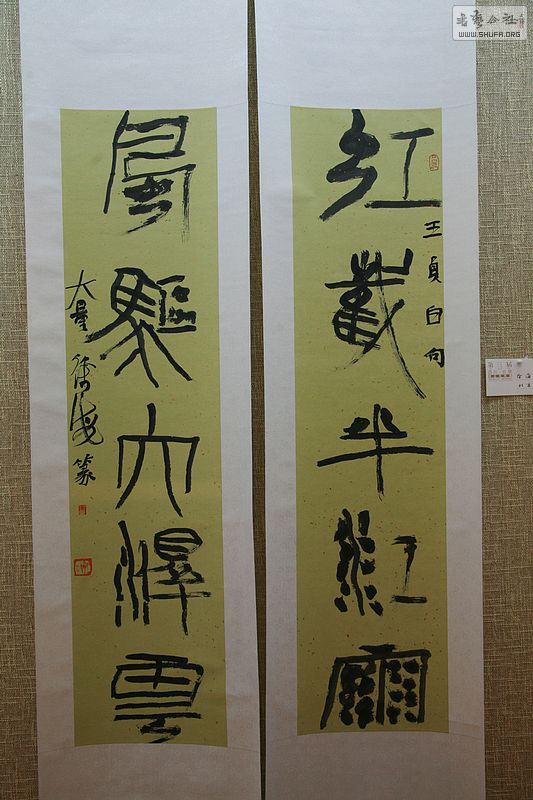 虹截半江雨
王貞白句
風驅大澤雲
大量徐海篆
書藝公社
WWW.SHUFA.ORG